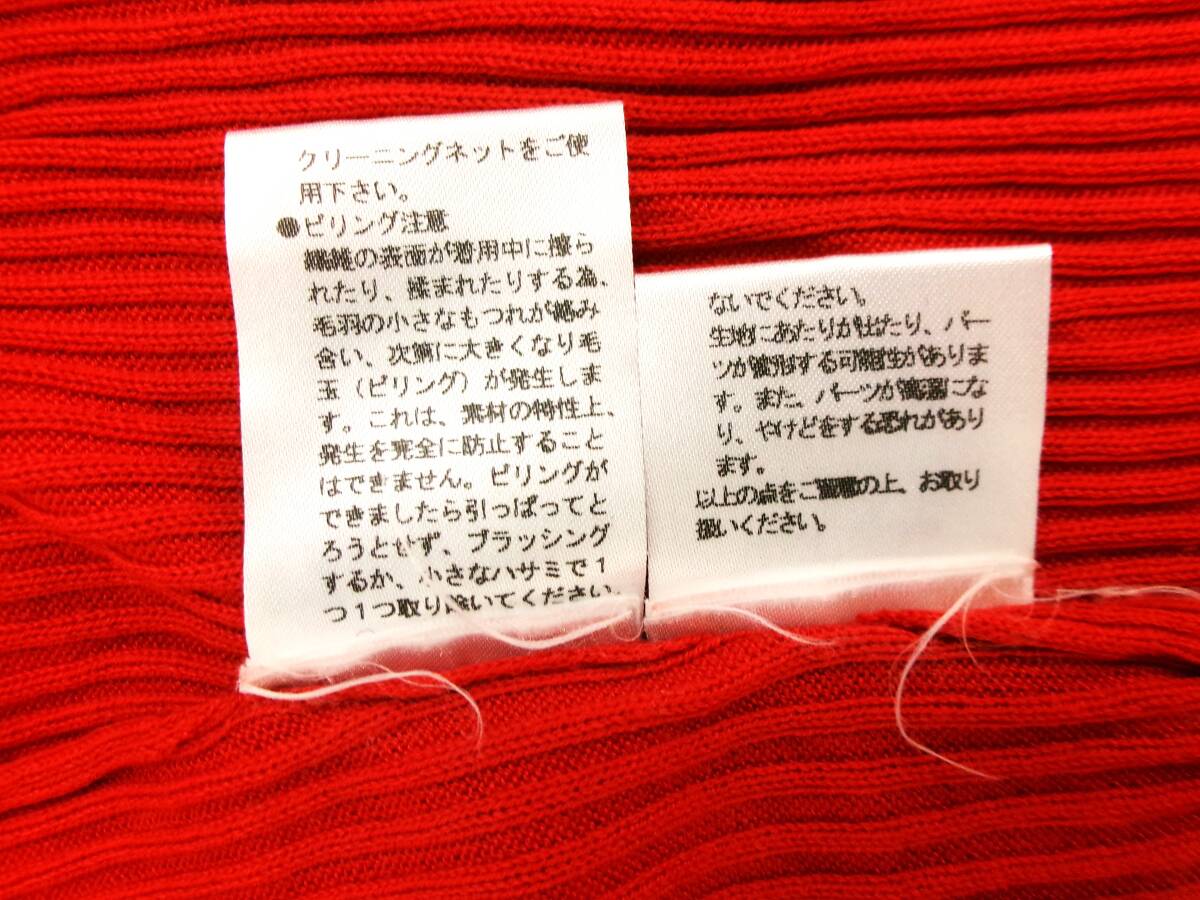 クリーニングネットをご使
用下さい。
●ピリング注意
繊維の表面が着用中に擦ら
れたり、揉まれたりする為、
毛羽の小さなもつれが絡み
合い、次第に大きくなり毛
玉（ピリング）が発生しま
す。これは、素材の特性上、
発生を完全に防止すること
はできません。ピリングが
できましたら引っぱってと
ろうとせず、ブラッシング
するか、小さなハサミで１
つ１つ取り除いてください。
ないでください。
生地にあたりが出たり、パー
ツが変形する可能性がありま
す。また、パーツが高温にな
り、やけどをする恐れがあり
ます。
以上の点をご留意の上、お取り
扱いください。